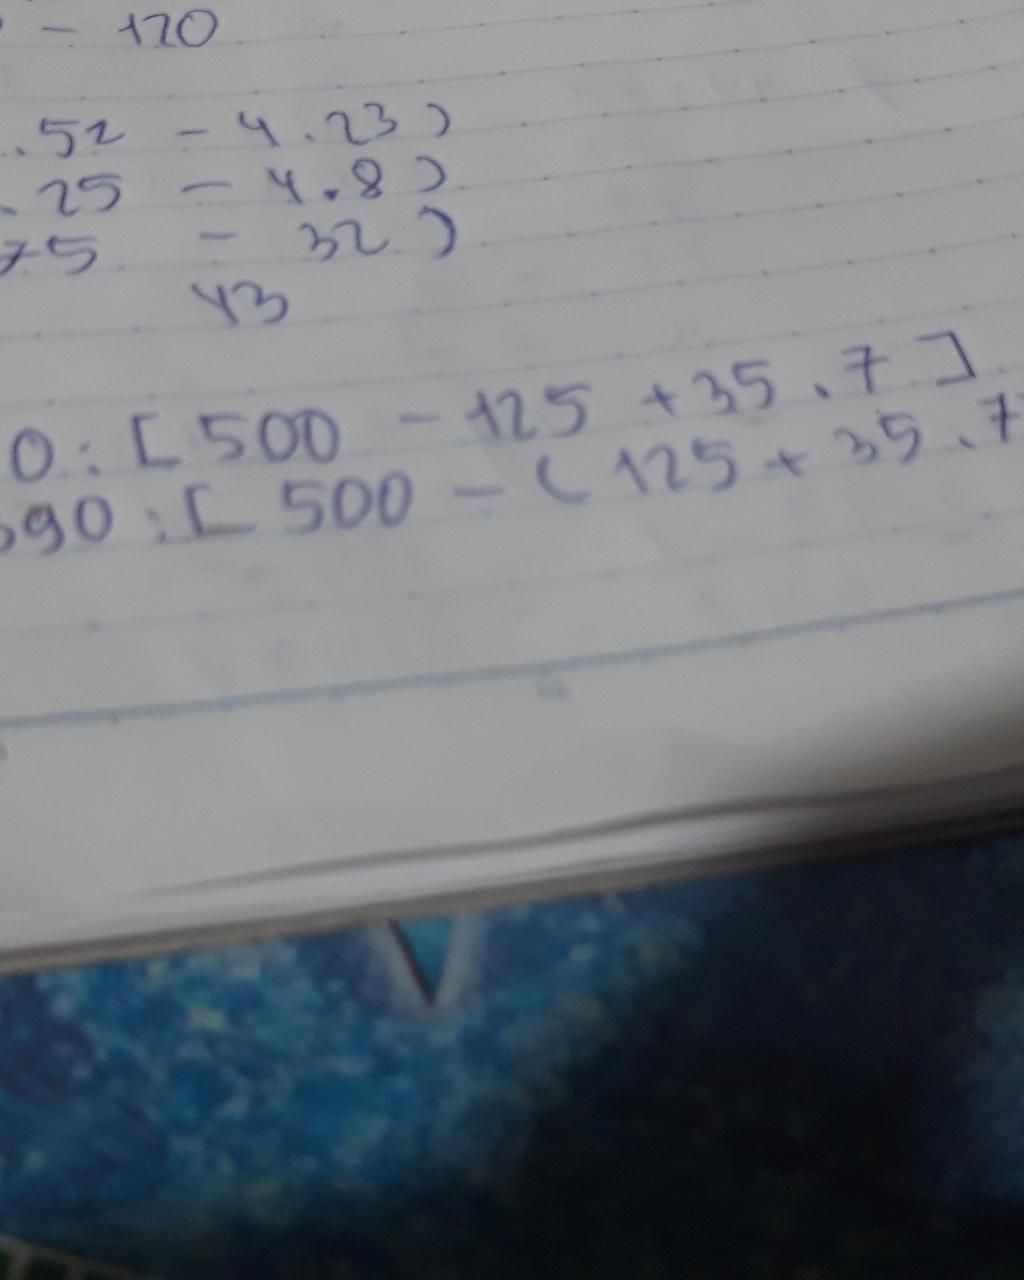 - 120
. 52 - 4 . 23 )
. 25 - 4 . 8 )
75 - 32 )
43
0 : [ 500 - 125 + 35 . 7 ]
390 : [ 500 - ( 125 + 35 . 7